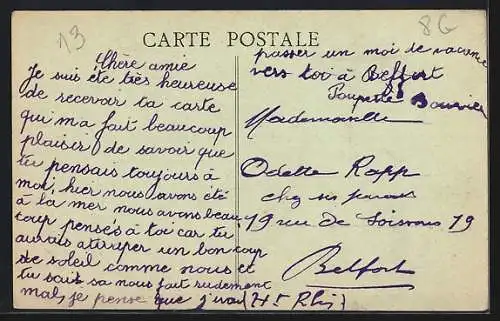 13
8G
CARTE POSTALE
Chère amie
Je suis été très heureuse
de recevoir ta carte
qui m'a fait beaucoup
plaisir de savoir que
tu pensais toujours à
moi, hier nous avons été
à la mer, nous avons beau
coup pensés à toi car tu
aurais attraper un bon coup
de soleil comme nous et
tu sais sa nous fait rudement
mal, je pense que j'irai
passer un moi de vacance
vers toi à Belfort
Mademoiselle
Odette Rapp
chez ses parents
19 rue de Soissons 19
Belfort
(Ht Rhin)